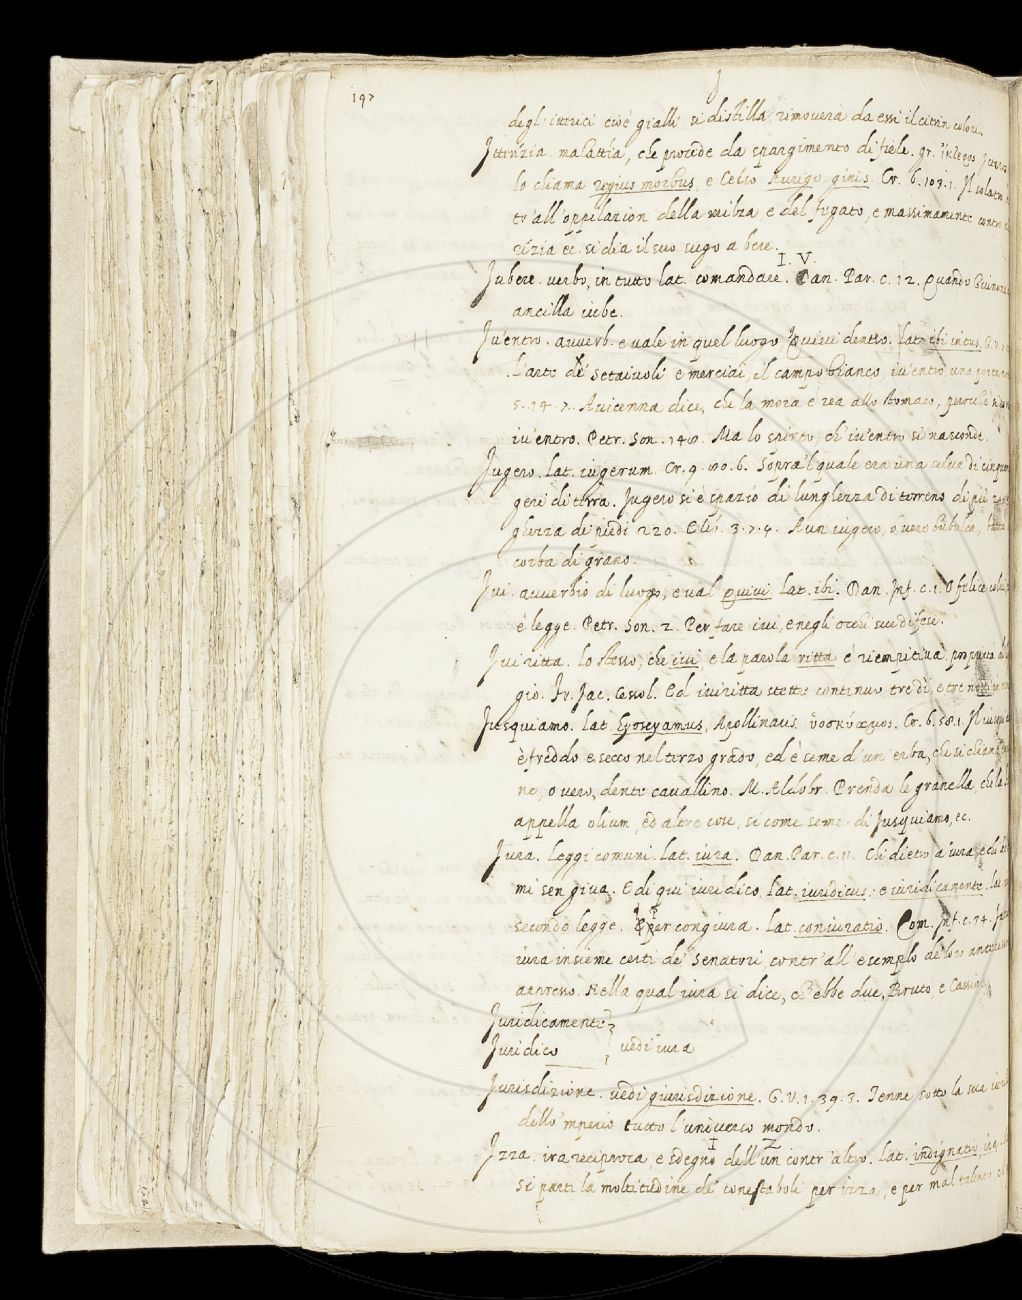 197
degl'itterici cioè gialli si distilla, rimoverà da essi il citrin colore.
Itterizia. malattia, che procede da spargimento di fiele. gr. ἴκτερος
lo chiama regius morbus, e Celso Aurigo, ginis. Cr. 6. 103. 1. Il solatro
to all'oppilazion della milza, e del fegato, e massimamente contro a
rizia ec. si dia il suo sugo a bere.
I. V.
Jubere. verbo, in tutto lat. comandare. Dan. Par. c. 12. Quando
ancilla iube.
Iv'entro. avverb. e vale in quel luogo, Quivi dentro. Lat. ibi intus. G. V.
L'arte de' setaiuoli e merciai, il campo bianco, iv'entro una porta
5. 14. 7. Avicenna dice, che la mora è rea allo stomaco, perocchè
iv'entro. Petr. Son. Ma lo spirto, ch'iv'entro si nasconde.
Jugero. Lat. iugerum. Cr. 9. 6. Sopra'l quale era una selva di
geri di terra. Jugero si è spazio di lunghezza di terreno di piè
ghezza di piedi 220. 3. 7. 4. A un iugero, o vero bubulca,
corba di grano.
Ivi. avverbio di luogo, e val Quivi. Lat. ibi. Dan. Inf. c. 1. O felice colui,
è legge. Petr. Son. 2. Per fare ivi, e negli occhi sue difese.
Ivi ritta. lo stesso, che ivi, e la parola ritta è riempitiva, proprietà
gio. Fr. Jac. Cessol. Ed iviritta stette continuo tre dì, e tre notti in
Jusquiamo. Lat. Hyoscyamus, Apollinaris. ὑοσκύαμος. Cr. 6. 58. 1. Il
è freddo e secco nel terzo grado, ed è seme d'un erba, che si chiama
ne, o vero, dente cavallino. M. Aldobr. Prenda le granella, che la
appella olium, ed altre cose, si come seme di Jusquiamo, ec.
Jura. Leggi comuni. Lat. iura. Dan. Par. c. 11. Chi dietro a iura, e chi
mi sen giva. E di qui iuridico. Lat. iuridicus: e iuridicamente.
secondo legge. E per congiura. Lat. coniuratio. Com. Inf. c. 34.
iura insieme certi de' Senatori contr'all'esemplo de' loro
appresso. Nella qual iura si dice, ch'ebbe due, Bruto, e Cassio.
Juridicamente
Juridico } vedi iura
Jurisdizione. vedi giurisdizione. G. V. 1. 39. 3. Tenne sotto la sua
dello'mperio tutto l'universo mondo.
I 2
Izza. ira reciproca, e sdegno dell'un contr'altro. Lat. indignatio,
Si partì la moltitudine de' conestaboli per izza, e per mal talento